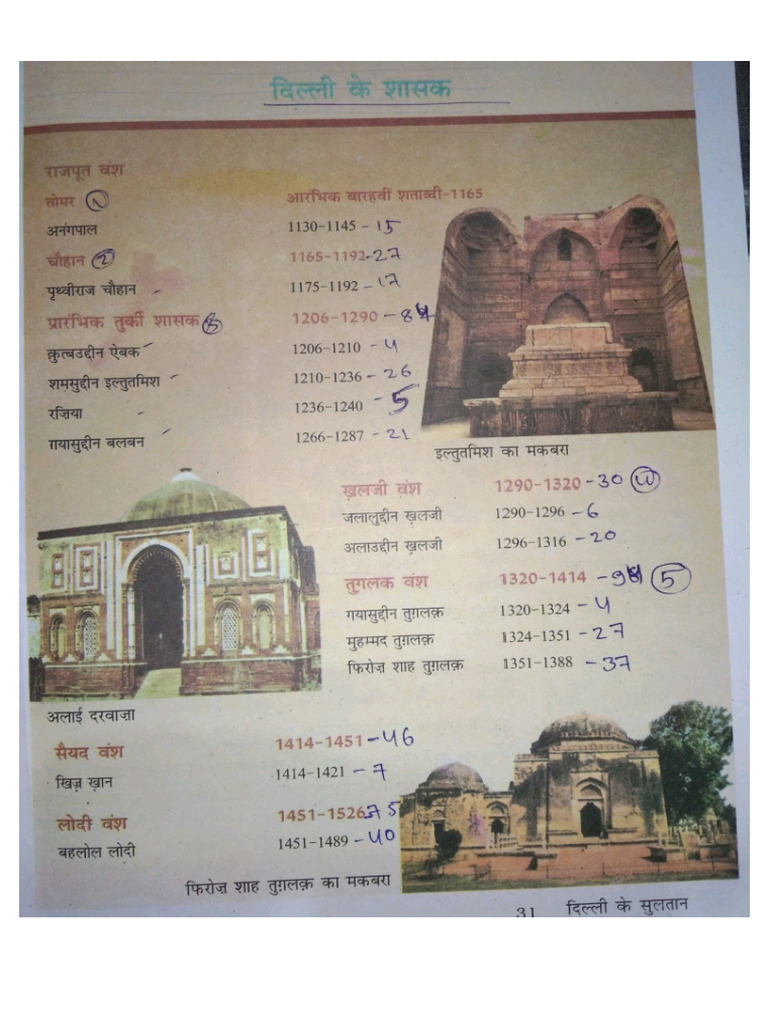 दिल्ली के शासक
राजपूत वंश
तोमर 1 आरंभिक बारहवीं शताब्दी-1165
अनंगपाल 1130-1145 - 15
चौहान 2 1165-1192 - 27
पृथ्वीराज चौहान - 1175-1192 - 17
प्रारंभिक तुर्की शासक 3 1206-1290 - 84
क़ुत्बउद्दीन ऐबक 1206-1210 - 4
शमसुद्दीन इल्तुतमिश 1210-1236 - 26
रज़िया - 1236-1240 - 5
ग़यासुद्दीन बलबन 1266-1287 - 21
इल्तुतमिश का मकबरा
ख़लजी वंश 1290-1320 - 30 4
जलालुद्दीन ख़लजी 1290-1296 - 6
अलाउद्दीन ख़लजी 1296-1316 - 20
तुग़लक वंश 1320-1414 - 94 5
गयासुद्दीन तुग़लक़ 1320-1324 - 4
मुहम्मद तुग़लक़ 1324-1351 - 27
फिरोज़ शाह तुग़लक़ 1351-1388 - 37
अलाई दरवाज़ा
सैयद वंश 1414-1451 - 46
ख़िज्र ख़ान 1414-1421 - 7
लोदी वंश 1451-1526 - 75
बहलोल लोदी 1451-1489 - 40
फिरोज़ शाह तुग़लक़ का मकबरा
31 दिल्ली के सुलतान